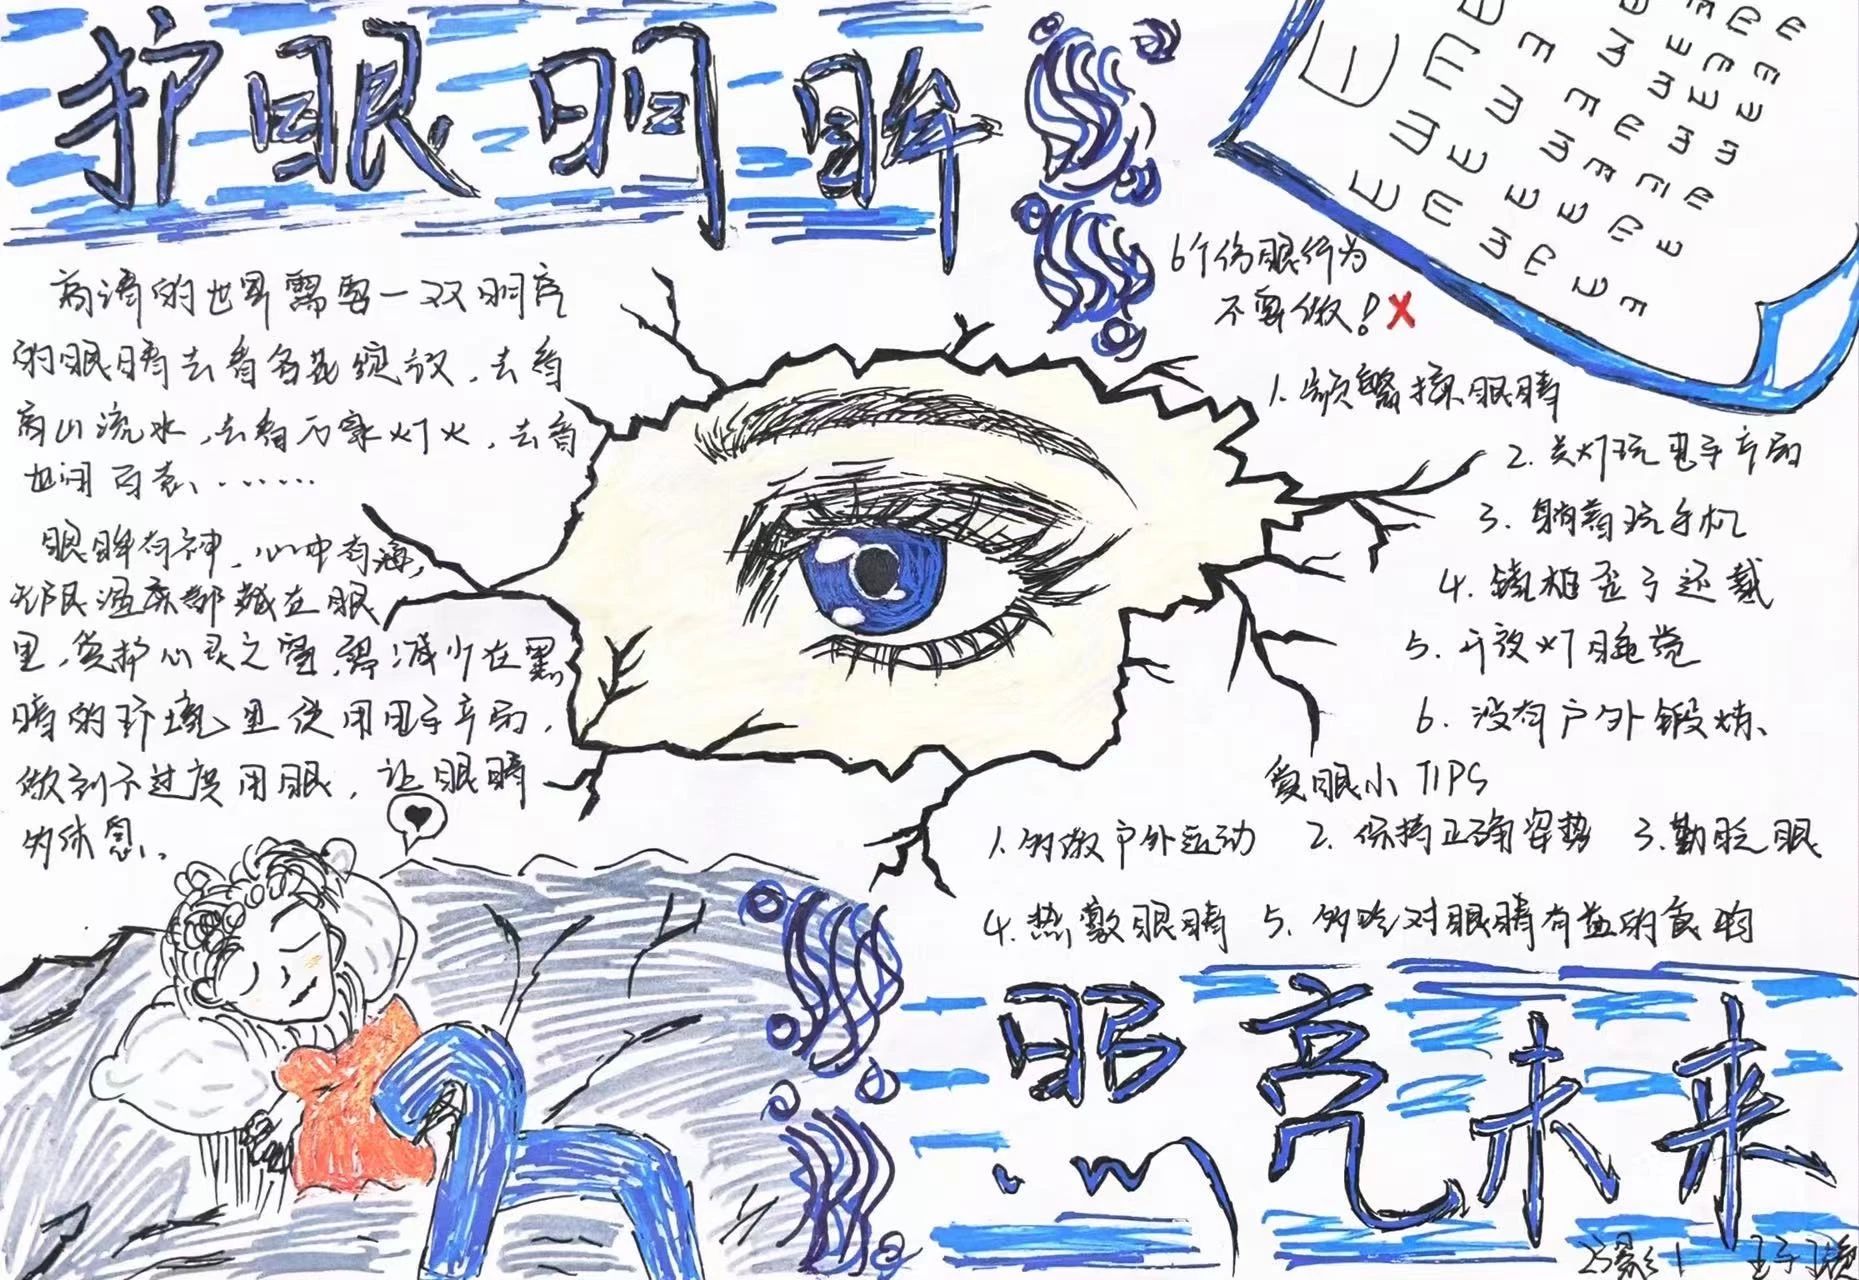 护眼明眸
高清的世界需要一双明亮
的眼睛去看名花绽放,去看
高山流水,去看万家灯火,去看
世间百态......
眼眸有神,心中有海,
无限温柔都藏在眼
里,爱护心灵之窗,需减少在黑
暗的环境里使用电子产品,
做到不过度用眼,让眼睛
多休息。
E
6个伤眼行为
不要做!X
1.频繁揉眼睛
2.关灯玩电子产品
3.躺着玩手机
4.镜框歪了还戴
5.开夜灯睡觉
6.没有户外锻炼、
爱眼小TIPS
1.多做户外运动 2.保持正确姿势 3.勤眨眼
4.热敷眼睛 5.多吃对眼睛有益的食物
照亮未来